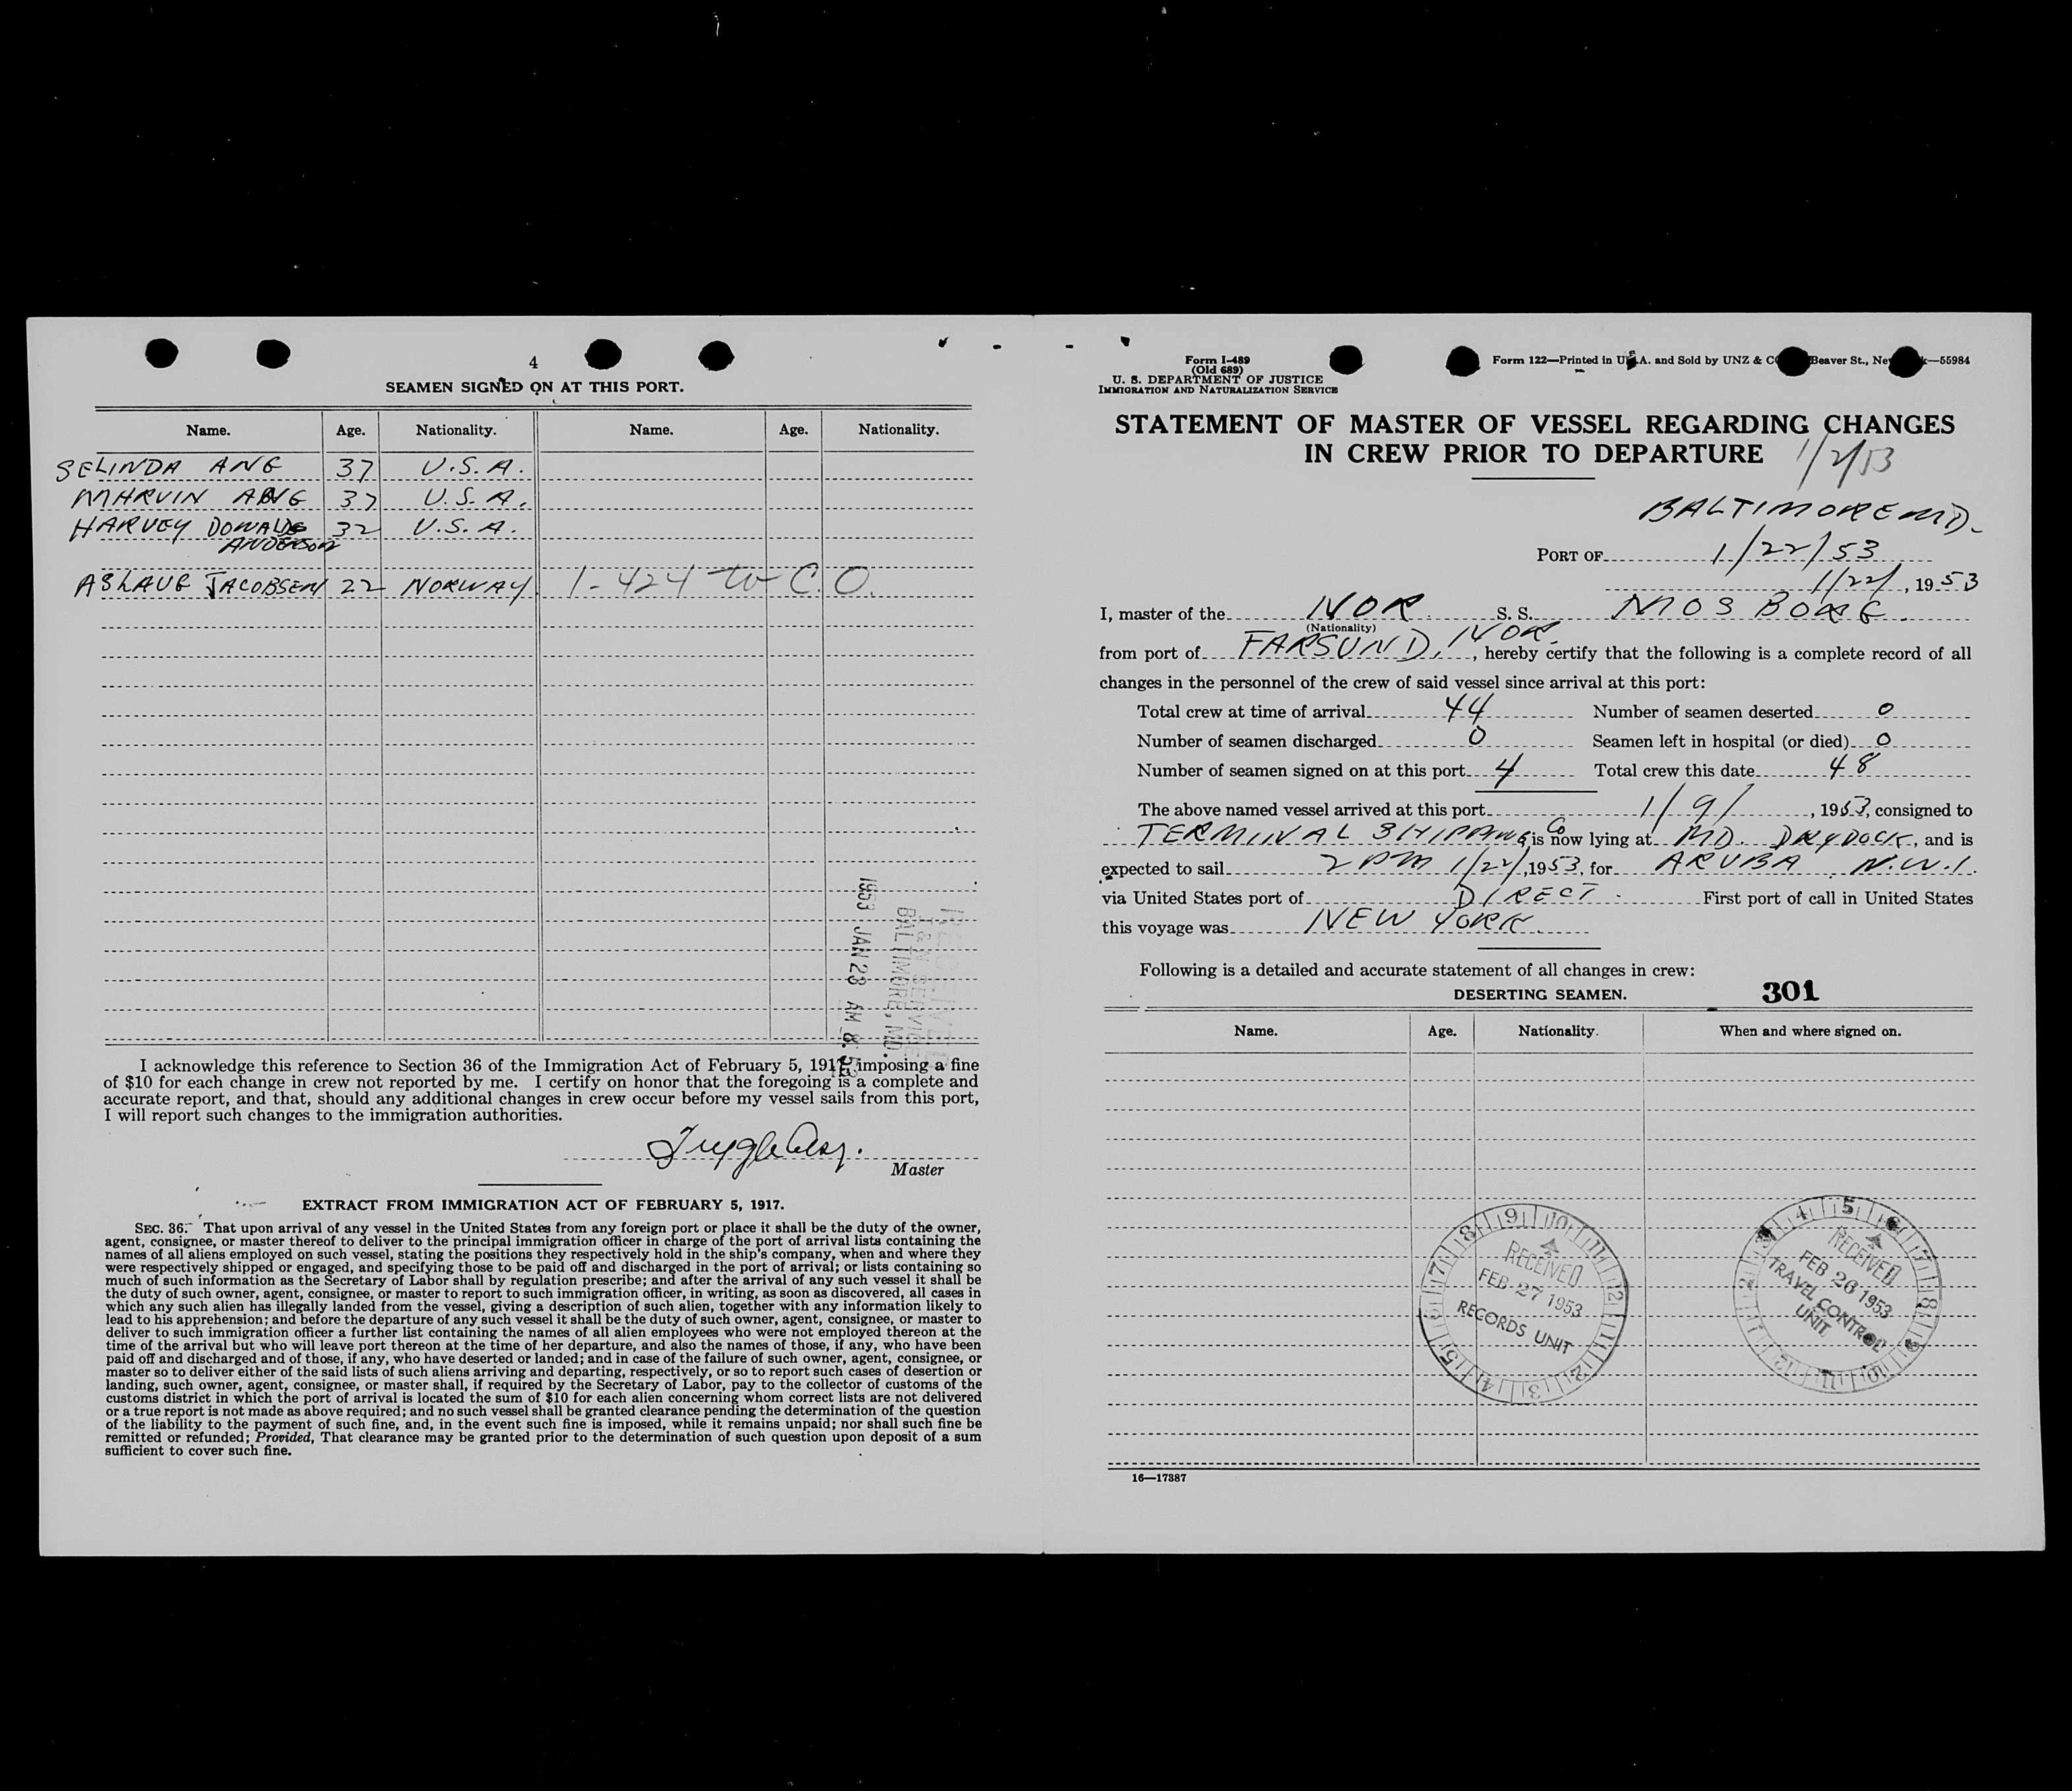 4
SEAMEN SIGNED ON AT THIS PORT.
Name. Age. Nationality. Name. Age. Nationality.
SELINDA ANG 37 U.S.A.
MARVIN ANG 37 U.S.A.
HARVEY DONALD 32 U.S.A.
ANDERSON
ASLAUG JACOBSEN 22 NORWAY 1-424 to C.O.
RECEIVED
I & N SERVICE
BALTIMORE, MD.
1953 JAN 23 AM 8:53
I acknowledge this reference to Section 36 of the Immigration Act of February 5, 1917, imposing a fine
of $10 for each change in crew not reported by me. I certify on honor that the foregoing is a complete and
accurate report, and that, should any additional changes in crew occur before my vessel sails from this port,
I will report such changes to the immigration authorities.
Master
EXTRACT FROM IMMIGRATION ACT OF FEBRUARY 5, 1917.
SEC. 36. That upon arrival of any vessel in the United States from any foreign port or place it shall be the duty of the owner,
agent, consignee, or master thereof to deliver to the principal immigration officer in charge of the port of arrival lists containing the
names of all aliens employed on such vessel, stating the positions they respectively hold in the ship's company, when and where they
were respectively shipped or engaged, and specifying those to be paid off and discharged in the port of arrival; or lists containing so
much of such information as the Secretary of Labor shall by regulation prescribe; and after the arrival of any such vessel it shall be
the duty of such owner, agent, consignee, or master to report to such immigration officer, in writing, as soon as discovered, all cases in
which any such alien has illegally landed from the vessel, giving a description of such alien, together with any information likely to
lead to his apprehension; and before the departure of any such vessel it shall be the duty of such owner, agent, consignee, or master to
deliver to such immigration officer a further list containing the names of all alien employees who were not employed thereon at the
time of the arrival but who will leave port thereon at the time of her departure, and also the names of those, if any, who have been
paid off and discharged and of those, if any, who have deserted or landed; and in case of the failure of such owner, agent, consignee, or
master so to deliver either of the said lists of such aliens arriving and departing, respectively, or so to report such cases of desertion or
landing, such owner, agent, consignee, or master shall, if required by the Secretary of Labor, pay to the collector of customs of the
customs district in which the port of arrival is located the sum of $10 for each alien concerning whom correct lists are not delivered
or a true report is not made as above required; and no such vessel shall be granted clearance pending the determination of the question
of the liability to the payment of such fine, and, in the event such fine is imposed, while it remains unpaid; nor shall such fine be
remitted or refunded; Provided, That clearance may be granted prior to the determination of such question upon deposit of a sum
sufficient to cover such fine.
Form I-489
(Old 689)
U. S. DEPARTMENT OF JUSTICE
IMMIGRATION AND NATURALIZATION SERVICE
Form 122—Printed in U.S.A. and Sold by UNZ & C Beaver St., Ne k—55984
STATEMENT OF MASTER OF VESSEL REGARDING CHANGES
IN CREW PRIOR TO DEPARTURE 1/2/53
BALTIMORE MD.
PORT OF 1/22/53
1/22/, 1953
I, master of the NOR S. S. MOSBORG.
(Nationality)
from port of FARSUND, NOR., hereby certify that the following is a complete record of all
changes in the personnel of the crew of said vessel since arrival at this port:
Total crew at time of arrival 44 Number of seamen deserted 0
Number of seamen discharged 0 Seamen left in hospital (or died) 0
Number of seamen signed on at this port 4 Total crew this date 48
The above named vessel arrived at this port 1/9/, 1953, consigned to
TERMINAL SHIPPING Co is now lying at MD. DRYDOCK, and is
expected to sail 2 PM 1/22/, 1953, for ARUBA N.W.I.
via United States port of DIRECT. First port of call in United States
this voyage was NEW YORK.
Following is a detailed and accurate statement of all changes in crew:
DESERTING SEAMEN. 301
Name. Age. Nationality. When and where signed on.
RECEIVED
FEB 27 1953
RECORDS UNIT
RECEIVED
FEB 26 1953
TRAVEL CONTROL
UNIT
16—17887